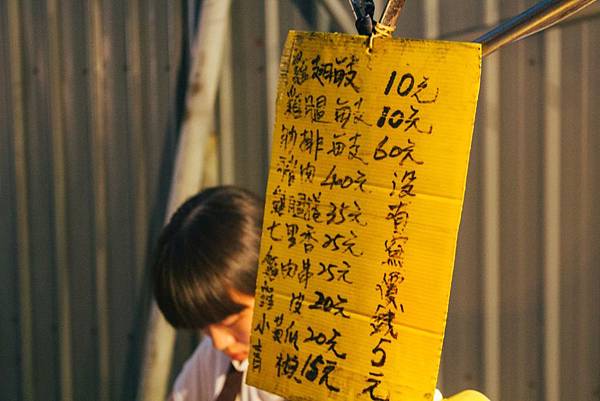 雞翅每支10元
雞腿每支10元
肋排每支60元
豬肉40元
雞腿35元
七里香25元
雞肉串25元
雞皮20元
小黃瓜20元
青15元
沒有寫價錢5元